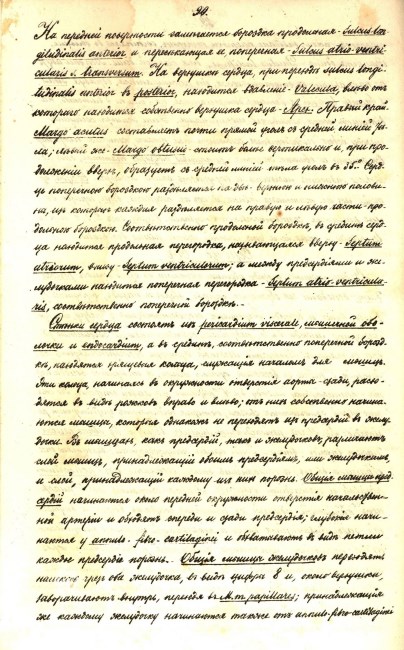 94.
На передней поверхности замечается бороздка продольная - Sulcus lon-
gitudinalis anterior и пересекающая ее поперечная - Sulcus atrio-ventri-
cularis s. transversum. На верхушке сердца, при переходе sulcus longi-
tudinalis anterior в posterior, находится вдавление - влево от
которого находится собственно верхушка сердца - Apex. Правый край
Margo acutus составляет почти прямой угол с средней линией те-
ла; левый же - Margo obtusus - стоит более вертикально и, при про-
должении вверх, образует с средней линией тела угол в 35°. Серд-
це поперечною бороздкою разделяется на две - верхнюю и нижнюю полови-
ны, из которых каждая разделяется на правую и левую части про-
дольною бороздкою. Соответственно продольной бороздке, в средине серд-
ца находится продольная перегородка, называющаяся вверху - Septum
atriorum, внизу - Septum ventriculorum; а между предсердиями и же-
лудочками находится поперечная перегородка - Septum atrio-ventricula-
ris, соответственно поперечной бороздке.
Стенки сердца состоят из pericardium viscerale, мышечной обо-
лочки и endocardium, а в средине, соответственно поперечной борозд-
ке, находятся хрящевые кольца, служащия началом для мышц.
Эти кольца, начинаясь в окружности отверстия аорты сзади, расхо-
дятся в виде рожков вправо и влево; от них собственно начина-
ются мышцы, которые однакож не переходят из предсердий в желу-
дочки. В мышцах, как предсердий, так и желудочков, различают
слой мышц, принадлежащий обоим предсердиям, или желудочкам,
и слой, принадлежащий каждому из них порознь. Общия мышцы пред-
сердий начинаются около передней окружности отверстия
артерии и обходят спереди и сзади предсердия; глубокия начи-
наются у annulo-fibro-cartilaginei и охватывают в виде петли
каждое предсердие порознь. Общия мышцы желудочков переходят
чрез оба желудочка, в виде цифры 8 и, около верхушки,
заворачивают внутрь, переходя в M.m. papillares; принадлежащия
же каждому желудочку начинаются также от annulo-fibro-cartilaginei